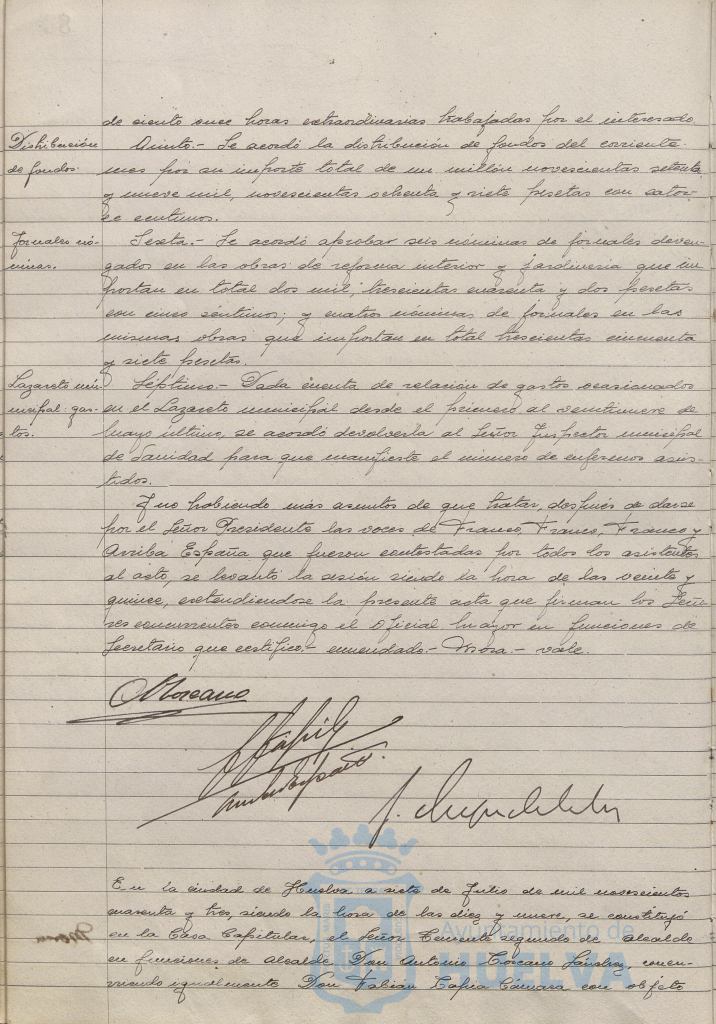 de ciento once horas extraordinarias trabajadas por el interesado
Distribución
de fondos.
Quinto.- Se acordó la distribución de fondos del corriente
mes por su importe total de un millón novescientas setenta
y nueve mil, novescientas ochenta y siete pesetas con cator-
ce centimos.
Jornales nó-
minas.
Sexta.- Se acordó aprobar seis nóminas de jornales deven-
gados en las obras de reforma interior y jardineria que im-
portan en total dos mil, trescientas cuarenta y dos pesetas
con cinco sentimos; y cuatro nóminas de jornales en las
mismas obras que importan en total trescientas cincuenta
y siete pesetas.
Lazareto mu-
nicipal: gas-
tos.
Séptimo.- Dada cuenta de relación de gastos ocasionados
en el Lazareto municipal desde el primero al veintinueve de
Mayo último, se acordó devolverla al Señor Inspector municipal
de Sanidad para que manifieste el número de enfermos asis-
tidos.
Y no habiendo más asuntos de que tratar, después de darse
por el Señor Presidente las voces de Franco, Franco, Franco y
Arriba España que fueron contestadas por todos los asistentes
al acto, se levantó la sesión siendo la hora de las veinte y
quince, extendiendose la presente acta que firman los Seño-
res concurrentes conmigo el Oficial Mayor en funciones de
Secretario que certifico.- enmendado.- Mora.- vale.
En la ciudad de Huelva a siete de Julio de mil novescientos
cuarenta y tres, siendo la hora de las diez y nueve, se constituyó
en la Casa Capitular, el Señor Teniente segundo de alcalde
en funciones de Alcalde, Don Antonio Toscano Sánchez, concu-
rriendo igualmente Don Fabian Tapia Cámara con objeto
Ayuntamiento de
HUELVA